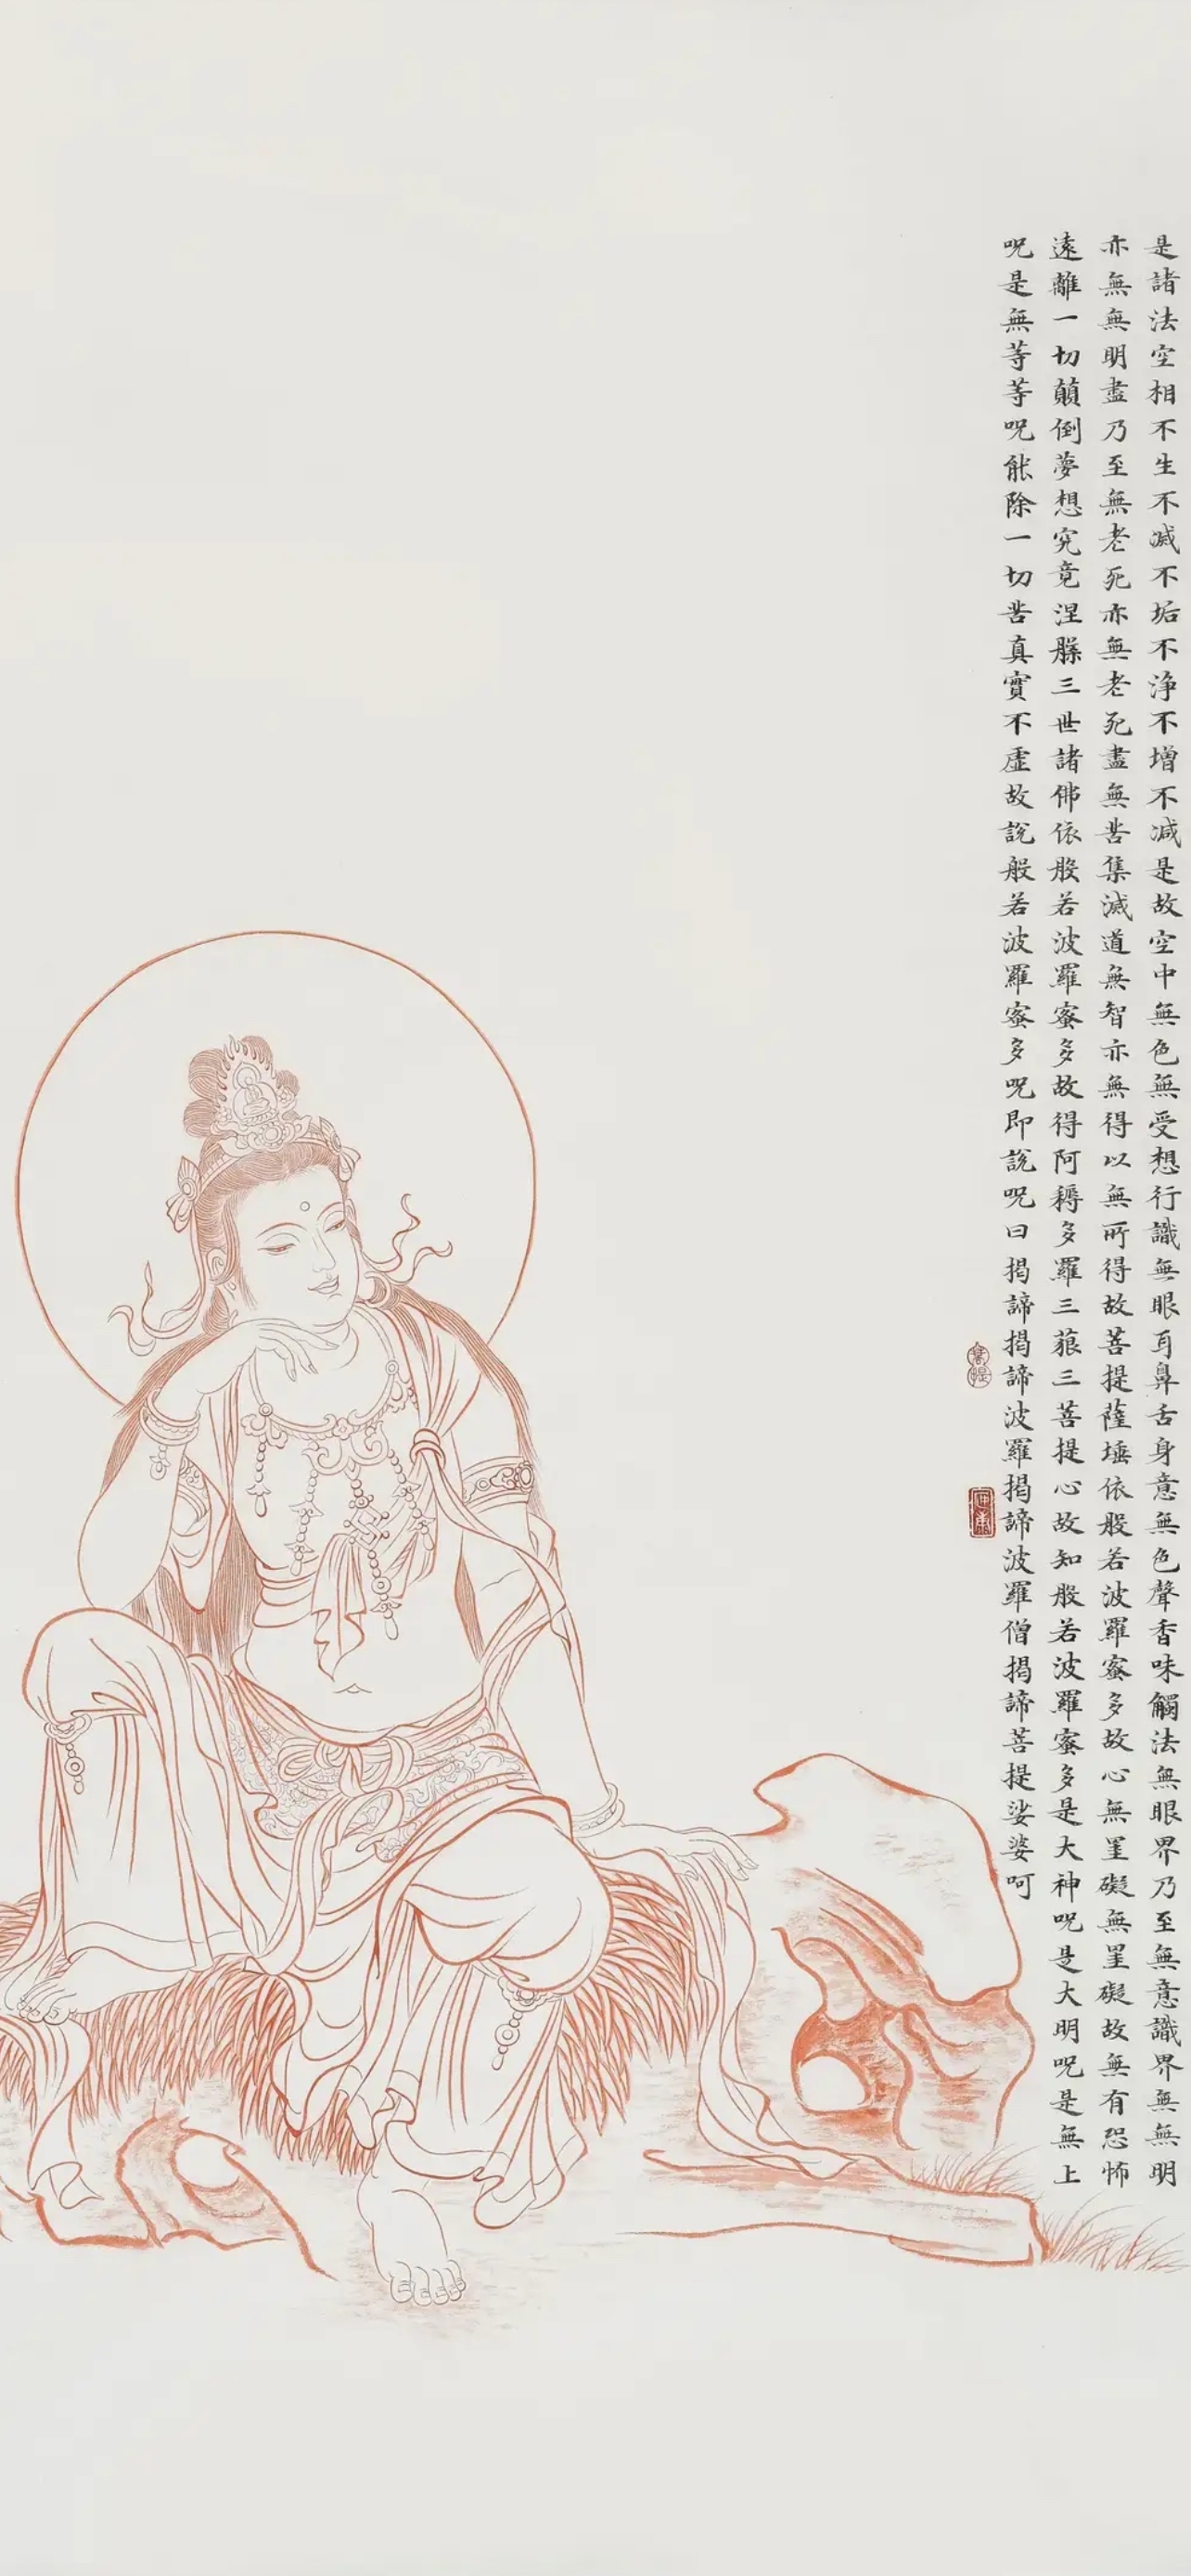 是諸法空相不生不滅不垢不浄不增不減是故空中無色無受想行識無眼耳鼻舌身意無色聲香味觸法無眼界乃至無意識界無無明
亦無無明盡乃至無老死亦無老死盡無苦集滅道無智亦無得以無所得故菩提薩埵依般若波羅蜜多故心無罣礙無罣礙故無有恐怖
遠離一切顛倒夢想究竟涅槃三世諸佛依般若波羅蜜多故得阿耨多羅三藐三菩提心故知般若波羅蜜多是大神呪是大明呪是無上
呪是無等等呪能除一切苦真實不虛故說般若波羅蜜多呪即說呪曰揭諦揭諦波羅揭諦波羅僧揭諦菩提娑婆呵